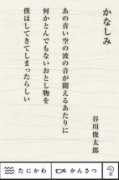 かなしみ
谷川俊太郎
あの青い空の波の音が聞えるあたりに
何かとんでもないおとし物を
僕はしてきてしまったらしい
たにかわ
かんさつ